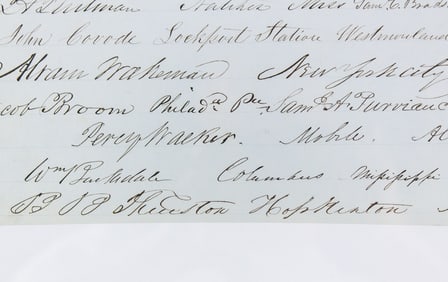 Quitman Natchez Miss Sam. C. Brads
John Covode Lockport Station Westmorelan
Abram Wakeman New York City
cob Broom Philadª Pa. Samˡ A. Purvianc
Percy Walker. Mobile. Al
Wm Barksdale Columbus Mississippi
Thurston Hopkinton